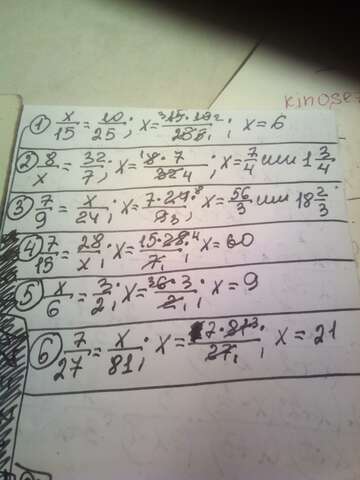 kinose
① x/15 = 10/25; x = ³15·10²/25₅; x = 6
② 8/x = 32/7; x = ¹8·7/32₄; x = 7/4 или 1 3/4
③ 7/9 = x/24; x = 7·24⁸/9₃; x = 56/3 или 18 2/3
④ 7/15 = 28/x; x = 15·28⁴/7₁; x = 60
⑤ x/6 = 3/2; x = ³6·3/2₁; x = 9
⑥ 7/27 = x/81; x = 7·81³/27₁; x = 21